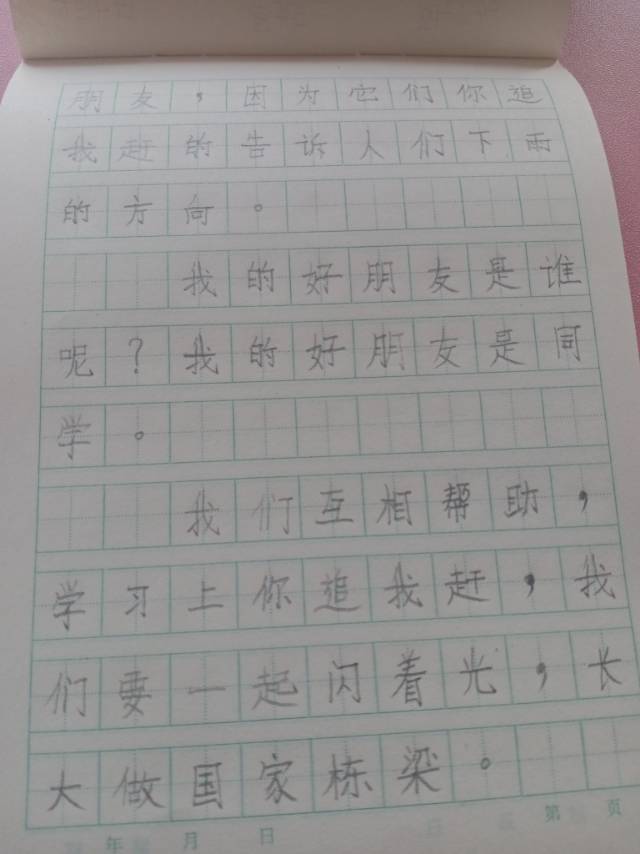 朋友，因为它们你追
我赶的告诉人们下雨
的方向。
我的好朋友是谁
呢？我的好朋友是同
学。
我们互相帮助，
学习上你追我赶，我
们要一起闪着光，长
大做国家栋梁。
年 月 日 第 页